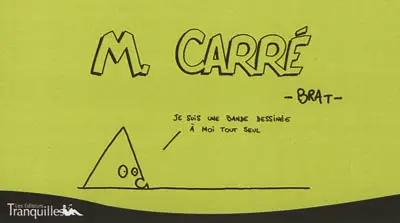 M. CARRÉ
-BRAT-
JE SUIS UNE BANDE DESSINÉE
À MOI TOUT SEUL
Les Éditions
Tranquilles